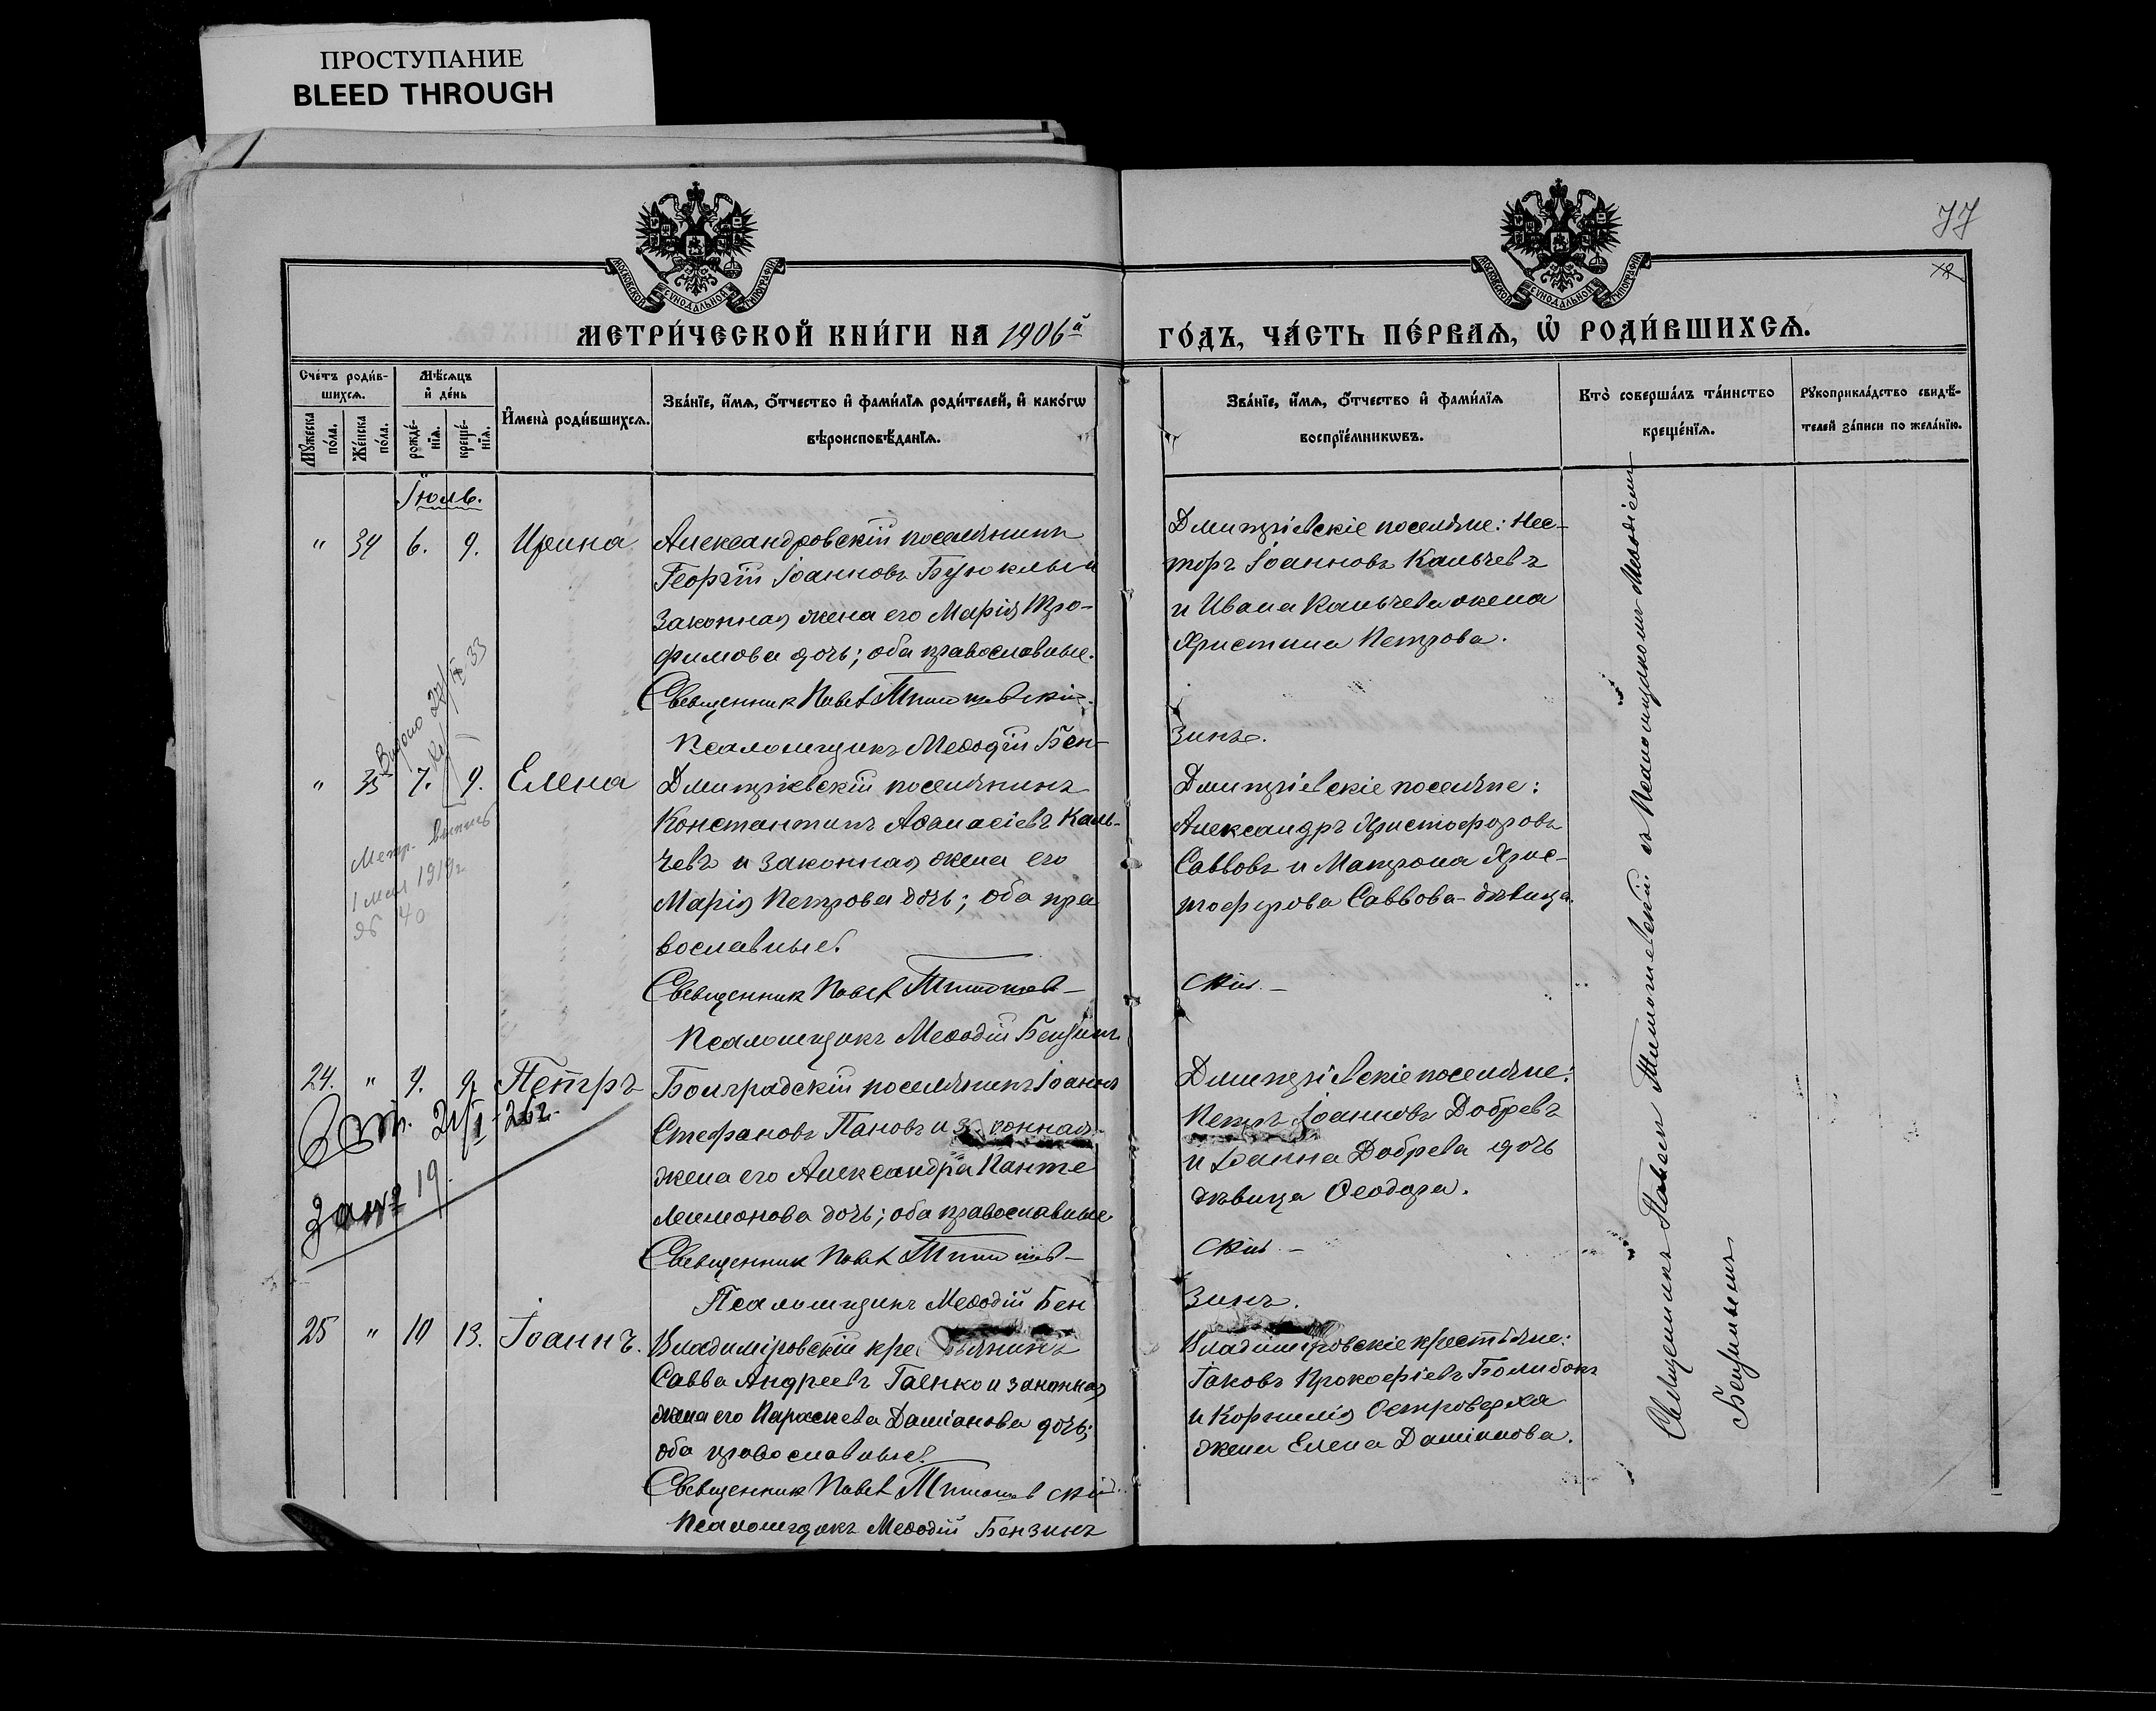 ПРОСТУПАНИЕ
BLEED THROUGH
77
МОСКОВСКОЙ СѴНОДАЛЬНОЙ ТИПОГРАФІИ
МОСКОВСКОЙ СѴНОДАЛЬНОЙ ТИПОГРАФІИ
МЕТРИ́ЧЕСКОЙ КНИ́ГИ НА 1906й
ГО́ДЪ, ЧА́СТЬ ПЕ́РВАѦ, Ѽ РОДИ́ВШИХСѦ.
Сче́тъ роди́в-
шихсѧ.
Мꙋ́жеска по́ла.
Же́нска по́ла.
Мѣ́сѧцъ
и҆ де́нь
рожде́-нїѧ.
креще́-нїѧ.
И҆мена̀ роди́вшихсѧ.
Зва́нїе, и҆́мѧ, о҆́тчество и҆ фами́лїѧ роди́телей, и҆ како́гѡ
вѣроисповѣ́данїѧ.
Зва́нїе, и҆́мѧ, о҆́тчество и҆ фами́лїѧ
воспрїе́мникѡвъ.
Кто̀ соверша́лъ та́инство
креще́нїѧ.
Рꙋкоприкла́дство свидѣ́-
телей за́писи по жела́нїю.
Іюль.
" 34 6. 9. Ирина
Александровскій поселянинъ
Георгій Іоанновъ Бузюклый
Законная жена его Марія Тро-
фимова дочь; оба православные.
Священникъ Павелъ Тимошевскій.
Псаломщикъ Меѳодій Бен-
Дмитріевскіе поселяне: Нес-
торъ Іоанновъ Кальчевъ
и Ивана Кальчева жена
Христина Петрова.
зинъ.
Видано 27/IX 33
" 35 7. 9. Елена
Метр. выпись
1 мая 1919г
№ 40
Дмитріевскій поселянинъ
Константинъ Аѳанасіевъ Каль-
чевъ и законная жена его
Марія Петрова дочь; оба пра
вославные.
Священникъ Павелъ Тимошев-
Псаломщикъ Меѳодій Бензинъ
Дмитріевскіе поселяне:
Александръ Христофоровъ
Савовъ и Матрона Хрис-
тофорова Саввова-дѣвица.
скій.-
24. " 9. 9. Петръ
21/I-26г.
За № 19.
Болградскій поселянинъ Іоаннъ
Стефановъ Пановъ и законная
жена его Александра Панте
лимонова дочь; оба православные
Священникъ Павелъ Тимошев-
Псаломщикъ Меѳодій Бен
Дмитріевскіе поселяне:
Петръ Іоанновъ Добревъ
и Іоанна Добрева дочь
дѣвица Ѳеодора.
скій.-
зинъ.
25 " 10 13. Іоаннъ.
Владиміровскій крестьянинъ
Савва Андреевъ Гаенко и законная
жена его Параскева Даміанова дочь;
оба православные.
Священникъ Павелъ Тимошевскій.
Псаломщикъ Меѳодій Бензинъ
Владиміровскіе крестьяне:
Іаковъ Прокофіевъ Болибокъ
и Корнилія Островерха
жена Елена Даміанова.
Священникъ Павелъ Тимошевскій съ Псаломщикомъ Меѳодіемъ
Бензинымъ